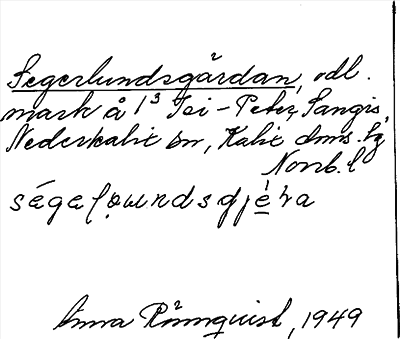 Segerlundsgärdan, odl.
mark å 1³ Isi-Peter, Sangis,
Nederkalix sn, Kalix dms. lg
Norrb. l
Anna Rönnquist, 1949